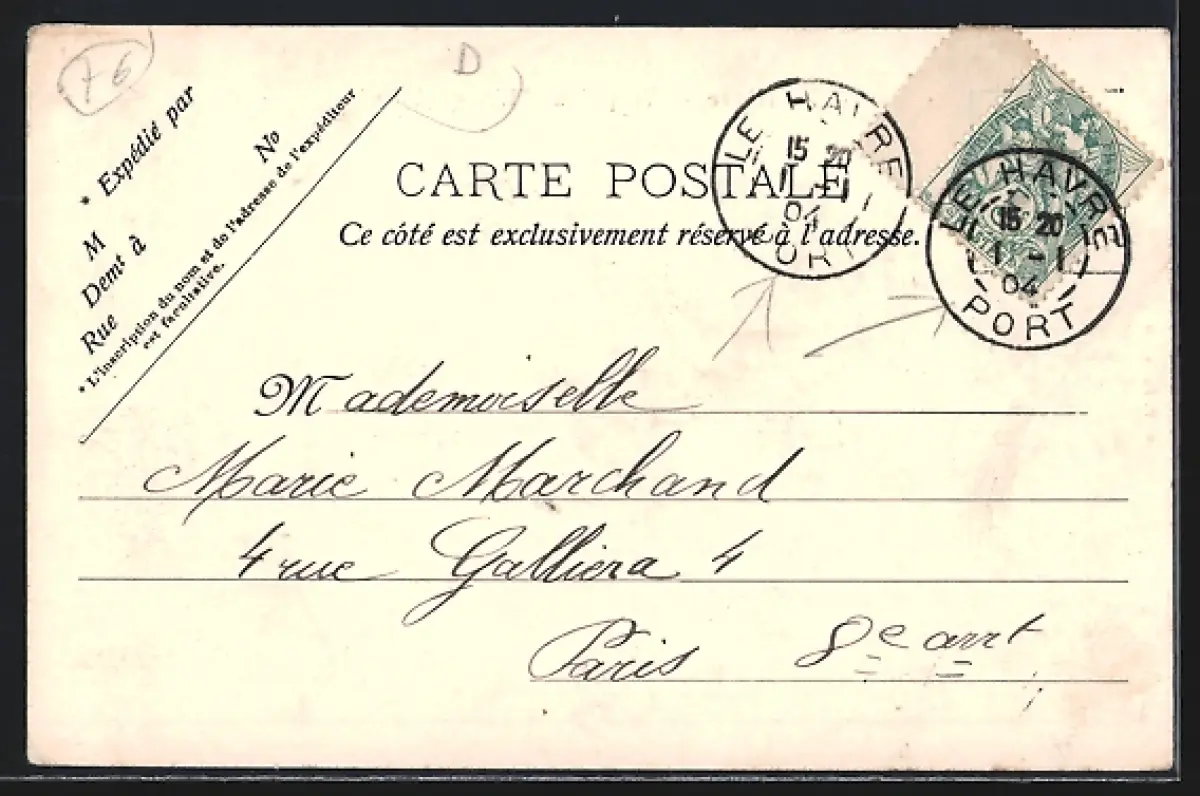 F6
D
* Expédié par
M
No
Demt à
Rue
* L'inscription du nom et de l'adresse de l'expéditeur
est facultative.
CARTE POSTALE
Ce côté est exclusivement réservé à l'adresse.
LE HAVRE
15 20
1 - 1
04
PORT
LE HAVRE
15 20
1 - 1
04
PORT
Mademoiselle
Marie Marchand
4 rue Galliera 4
Paris 8e arrt